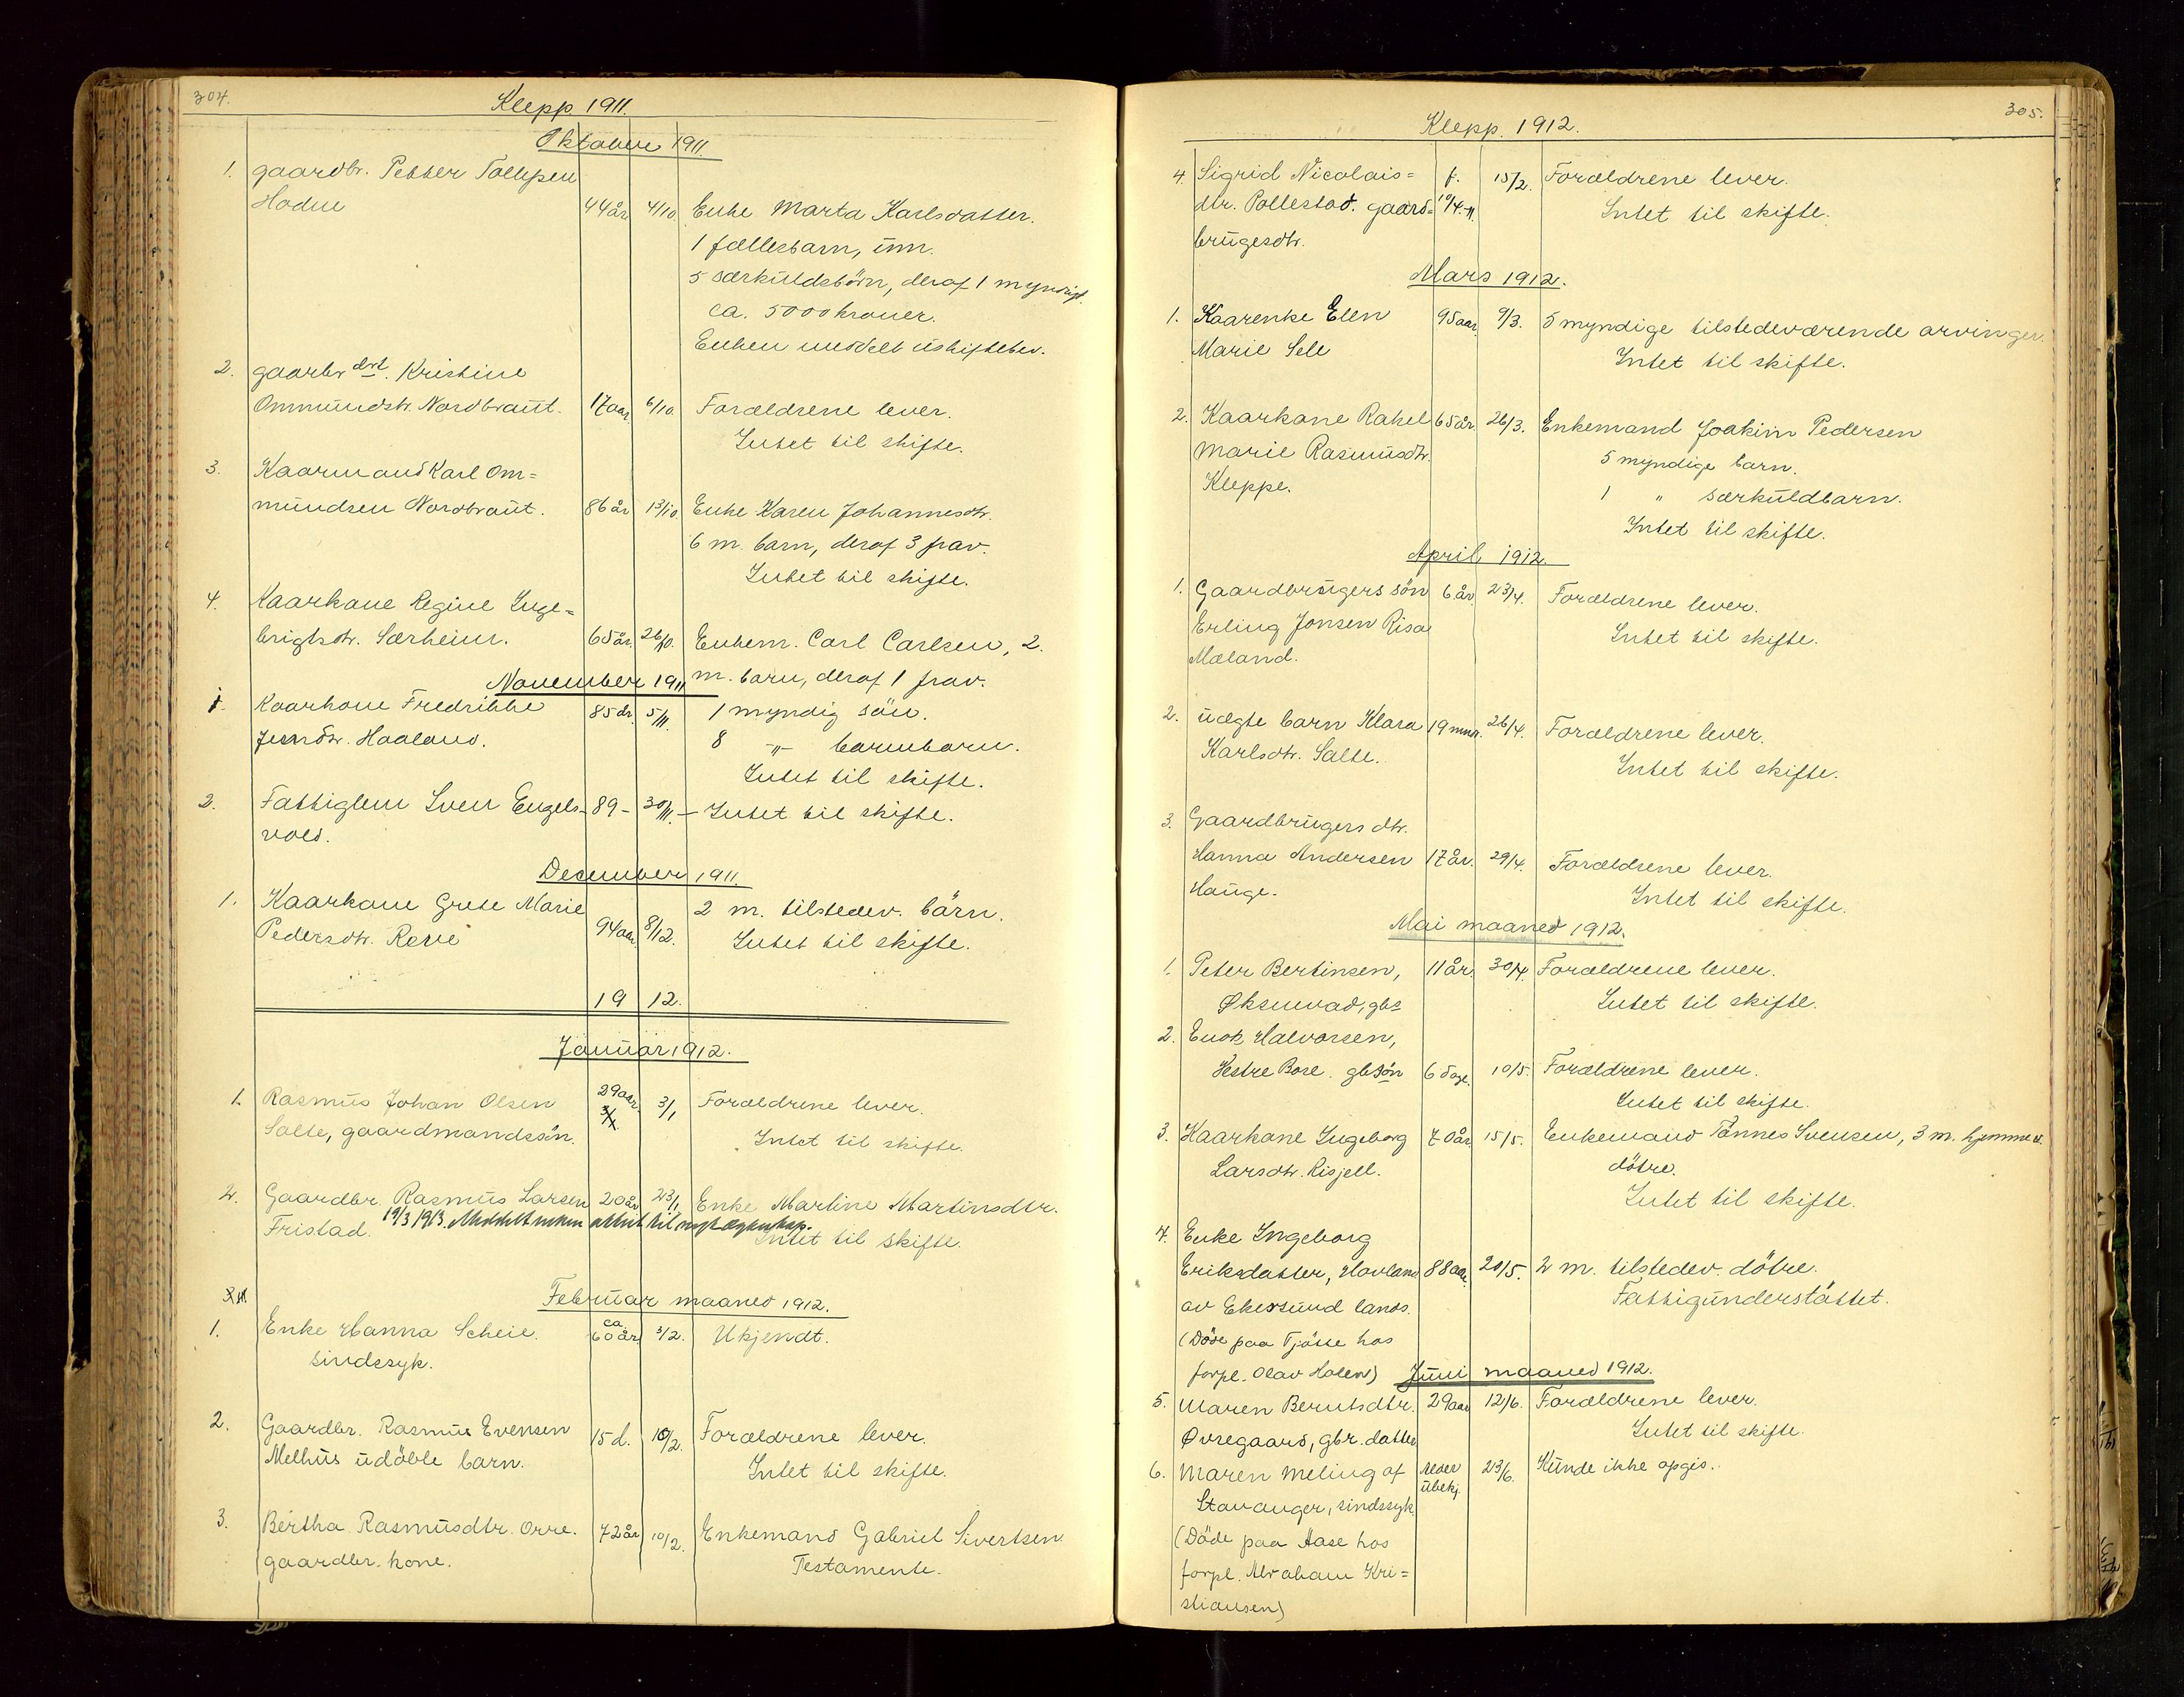 304.
Klepp 1911.
Oktober 1911.
1. gaardbr. Petter Tollefsen
Hodne 44år 4/10. Enke Marta Karlsdatter.
1 fællesbarn, um.
5 særkuldsbörn, deraf 1 myndigt.
ca. 5000 kroner.
Enken uidskiftebev.
2. gaarbr drt. Kristine
Ommundstr. Nordbraut. 17aar 6/10. Forældrene lever.
Intet til skifte.
3. Kaarmand Karl Om=
mundsen Nordbraut. 86år 13/10 Enke Karen Johannesdtr.
6 m. barn, deraf 3 frav.
Intet til skifte.
4. Kaarkone Regine Inge=
brigtsdtr. Særheim. 65år. 26/10. Enkem. Carl Carlsen, 2.
m. barn, deraf 1 frav.
November 1911
1. Kaarkone Fredrikke 85år. 5/11. 1 myndig sön.
Jensdtr. Haaland. 8 -"- barnebarn.
Intet til skifte.
2. Fattiglem Sven Engels- 89- 30/11. - Intet til skifte.
vold.
December 1911.
1. Kaarkone Grete Marie 2 m. tilstedev. börn.
Pedersdtr. Reve 94aar 8/12. Intet til skifte.
1912.
Januar 1912.
1. Rasmus Johan Olsen 29aar 3/1 Forældrene lever.
Salte, gaardmandssön. Intet til skifte.
2. Gaardbr. Rasmus Larsen 20år 23/1 Enke Martine Martinsdtr.
19/3 1913. Meddelt enken attest til nyt ægteskap.
Fristad. Intet til skifte.
Februar maaned 1912.
1. Enke Hanna Scheie. ca 60år 3/2. Ukjendt.
sindssyk.
2. Gaardbr. Rasmus Evensen 15d. 10/2. Forældrene lever.
Melhus udöbte barn. Intet til skifte.
3. Bertha Rasmusdtr. Orre. 72år 10/2. Enkemand Gabriel Sivertsen
gaardbr. kone. Testamente.
305.
Klepp. 1912.
4. Sigrid Nicolais= f. 15/2. Forældrene lever.
dtr. Pollestad. gaard= 19/4-11. Intet til skifte.
brugesdtr.
Mars 1912.
1. Kaarenke Elen 95aar 9/3. 5 myndige tilstedeværende arvinger.
Marie Sele Intet til skifte.
2. Kaarkone Rakel 65år. 26/3. Enkemand Joakim Pedersen
Marie Rasmusdtr. 5 myndige barn.
Kleppe. 1 " særkuldbarn.
Intet til skifte.
April 1912.
1. Gaardbrugers sön 6år. 23/4. Forældrene lever.
Erling Jonsen Risa Intet til skifte.
Mæland.
2. uægte barn Klara 19 mnr. 26/4. Forældrene lever.
Karlsdtr. Salte. Intet til skifte.
3. Gaardbrugers dtr.
Hanna Andersen 17år. 29/4. Forældrene lever.
Hauge. Intet til skifte.
Mai maaned 1912.
1. Peter Bertinsen, 11år. 30/4. Forældrene lever.
Øksnevad, gbs Intet til skifte.
2. Enok Halvorsen,
Vestre Bore. gbsön 6 dage. 10/5. Forældrene lever.
Intet til skifte.
3. Kaarkone Ingeborg 70år 15/5. Enkemand Tönnes Svensen, 3 m. hjemmev.
Larsdtr. Risjell. dötre.
Intet til skifte.
4. Enke Ingeborg
Eriksdatter, Hovland 88aar. 20/5. 2 m. tilstedev. dötre.
av Ekersund lands. Fattigunderstöttet.
(Döde paa Tjötte hos
forpl. Olav Holen)
Juni maaned 1912.
5. Maren Berntsdtr. 29aar 12/6. Forældrene lever.
Øvregaard, gbr. datter Intet til skifte.
6. Maren Meling af Alder ubekj. 23/6. Kunde ikke opgis.
Stavanger, sindssyk
(Döde paa Aase hos
forpl. Abraham Kri=
stiansen)